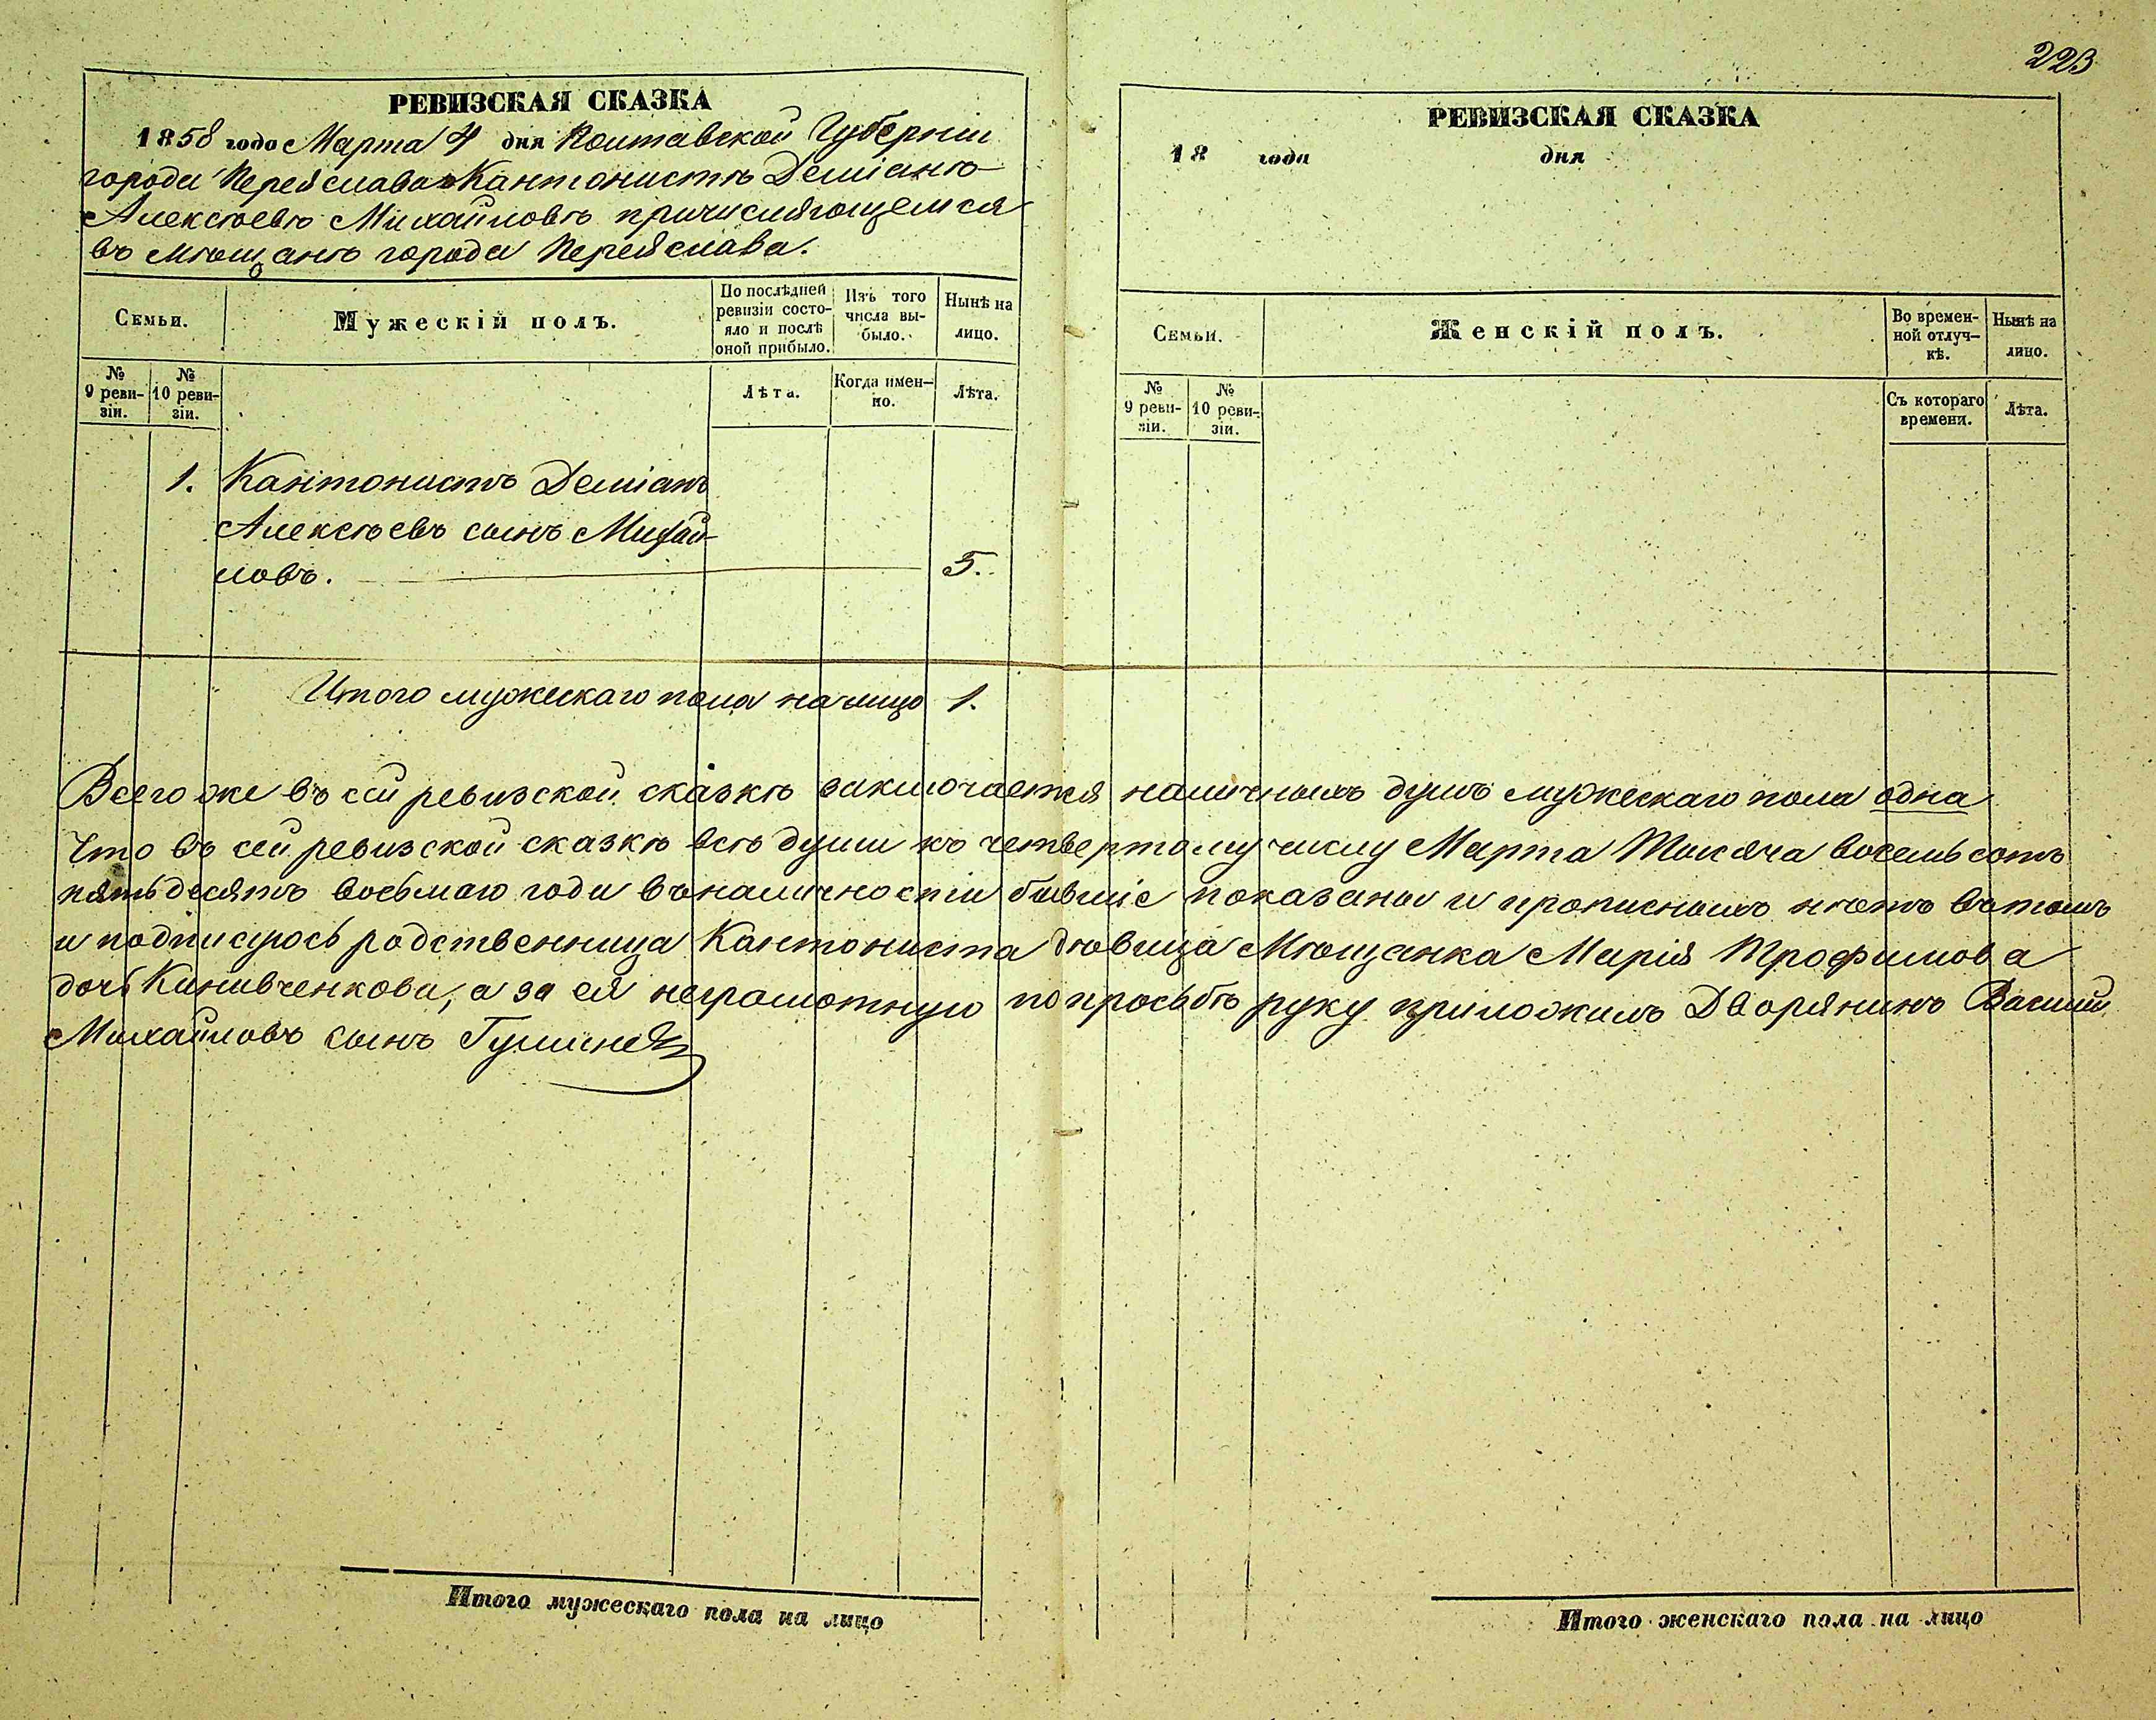 223
РЕВИЗСКАЯ СКАЗКА
1858 года Марта 4 дня Полтавской Губерніи
города Переяслава Кантонистѣ Деміанѣ
Алексѣевѣ Михайловѣ причисляющемся
въ мѣщанѣ города Переяслава.
Семьи.
Мужескій полъ.
По послѣдней ревизіи состояло и послѣ оной прибыло.
Изъ того числа выбыло.
Нынѣ на лицо.
№ 9 ревизіи.
№ 10 ревизіи.
Лѣта.
Когда именно.
Лѣта.
1. Кантонистъ Деміанъ
Алексѣевъ сынъ Михай-
ловъ. 5.
Итого мужескаго пола на лицо 1.
РЕВИЗСКАЯ СКАЗКА
18 года дня
Семьи.
Женскій полъ.
Во временной отлучкѣ.
Нынѣ на лицо.
№ 9 ревизіи.
№ 10 ревизіи.
Съ котораго времени.
Лѣта.
Всего же въ сей ревизской сказкѣ заключается наличныхъ душъ мужескаго пола одна
Что въ сей ревизской сказкѣ всѣ души къ четвертому числу Марта Тысяча восемь сотъ
пятьдесятъ восьмаго года въ наличности бывшіе показаны и прописныхъ нѣтъ въ томъ
и подписуюсь родственница Кантониста дѣвица Мѣщанка Марія Трофимова
дочь Канивченкова, а за ея неграмотную по просьбѣ руку приложилъ Дворянинъ Василій
Михайловъ сынъ
Итого мужескаго пола на лицо
Итого женскаго пола на лицо